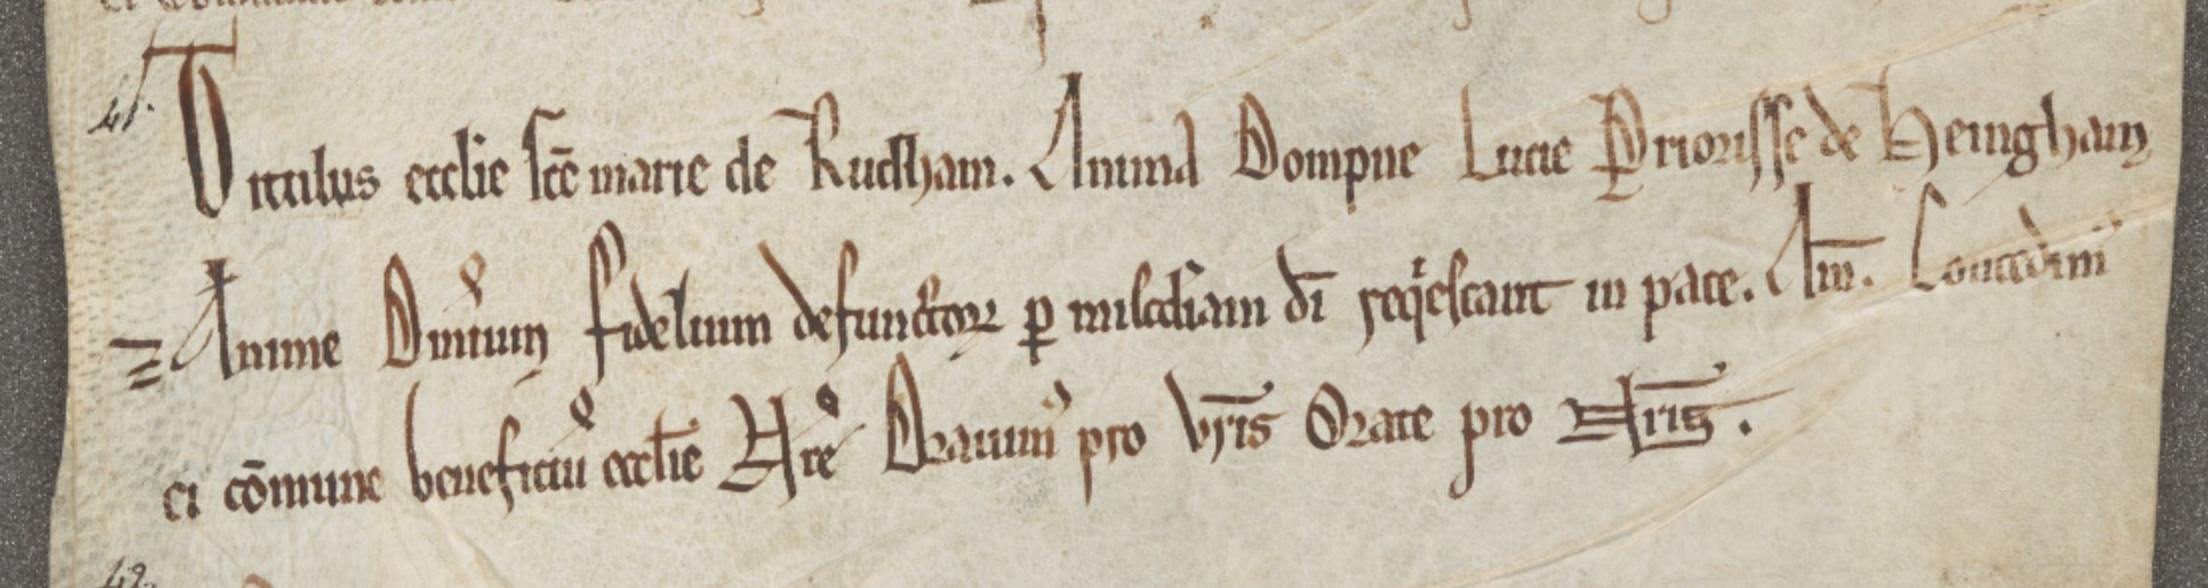 41.
Titulus ecclie sce marie de Rudham. Anima Dompne Lucie Priorisse de Heingham
Anime Omium fidelium defunctoꝝ ꝑ miscdiam dī reqiescant in pace. Am̄. Concedim᾽
ei cōmune beneficiū ecclie Nre Oramus pro vris Orate pro Nris.
42.